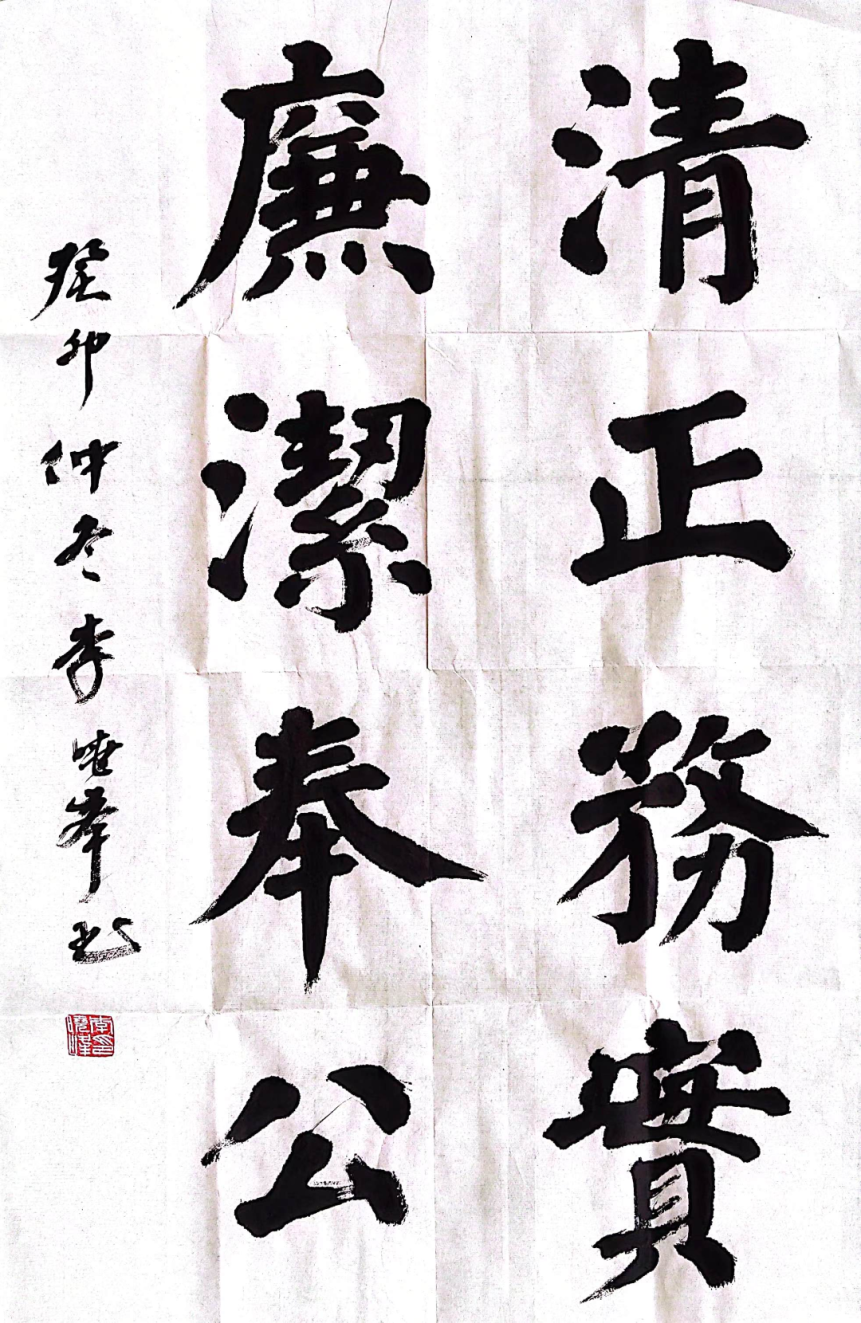 清正務實
廉潔奉公
癸卯仲冬李曉峯书